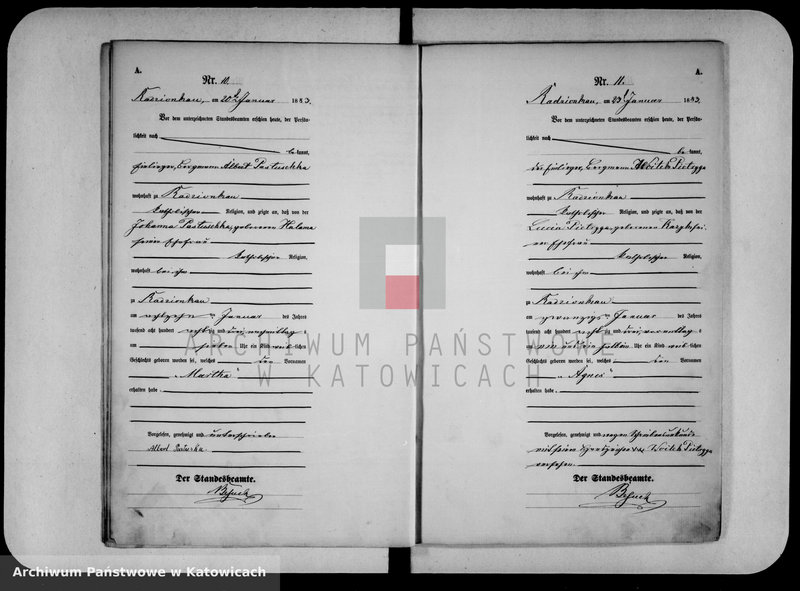 A.
Nr. 10.
Radzionkau, am 20ten Januar 1883.
Vor dem unterzeichneten Standesbeamten erschien heute, der Persön-
lichkeit nach
be kannt,
Albert Pastuschka
wohnhaft zu Radzionkau
katholischer Religion, und zeigte an, daß von der
Johanna Pastuschka, geborenen Halama
seiner Ehefrau
katholischer Religion,
wohnhaft bei ihm
zu Radzionkau
am achtzehnten Januar des Jahres
tausend acht hundert achtzig und drei, nachmittag s
um sieben Uhr ein Kind weib lichen
Geschlechts geboren worden sei, welches den Vornamen
"Martha"
erhalten habe
Vorgelesen, genehmigt und unterschrieben
Albert
Der Standesbeamte.
A.
Nr. 11.
Radzionkau, am 23ten Januar 1883.
Vor dem unterzeichneten Standesbeamten erschien heute, der Persön-
lichkeit nach
be kannt,
der Einlieger, Bergmann
wohnhaft zu Radzionkau
katholischer Religion, und zeigte an, daß von der
Lucia geborenen
Ehefrau
katholischer Religion,
wohnhaft bei ihm
zu Radzionkau
am zwanzigsten Januar des Jahres
tausend acht hundert achtzig und drei, vormittag s
um Uhr ein Kind weib lichen
Geschlechts geboren worden sei, welches den Vornamen
"Agnes"
erhalten habe
Vorgelesen, genehmigt und wegen
mit seinem Handzeichen
versehen.
Der Standesbeamte.
ARCHIWUM PAŃSTWOWE
W KATOWICACH
Archiwum Państwowe w Katowicach